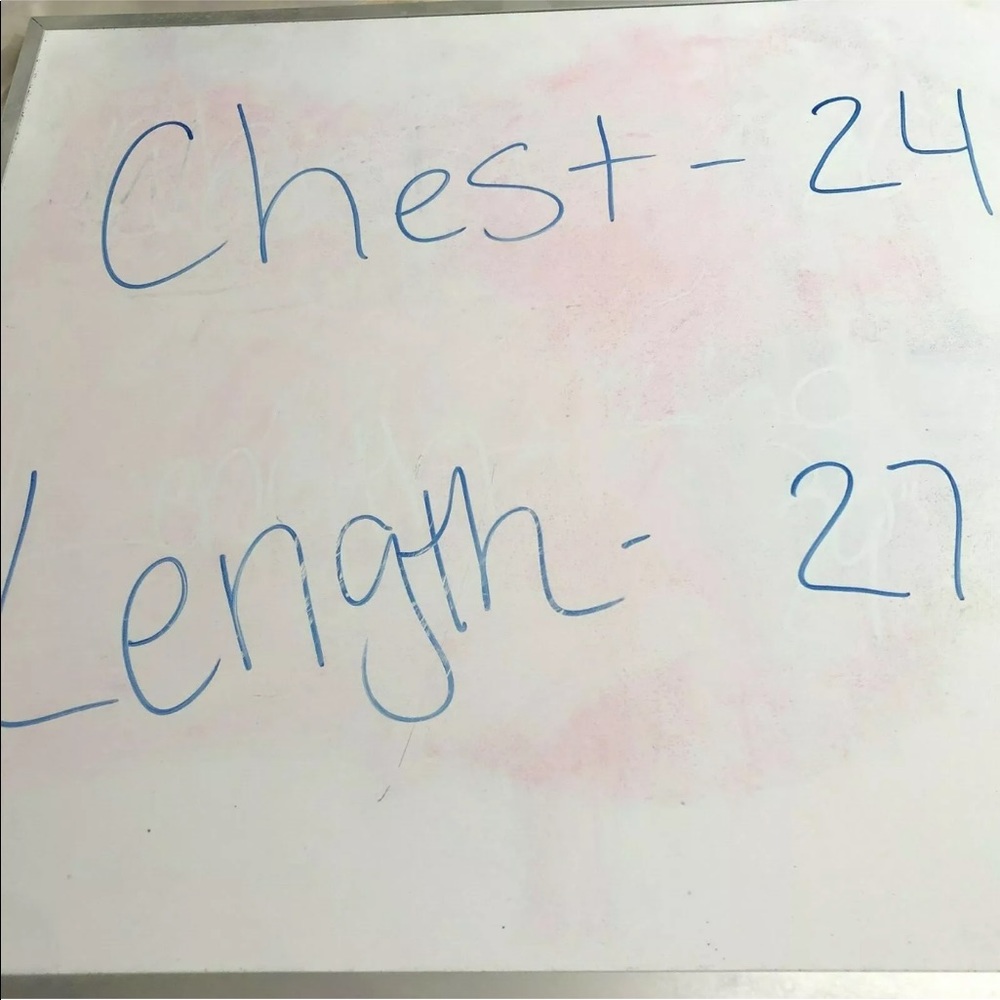 Chest - 24
Length - 27